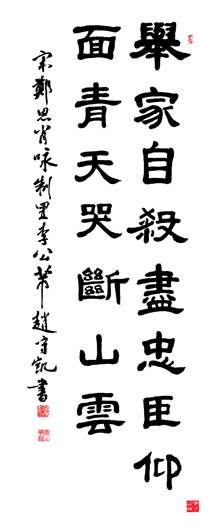 舉家自殺盡忠臣仰
面青天哭斷山雲
宋鄭思肖咏制置李公芾趙守凱書